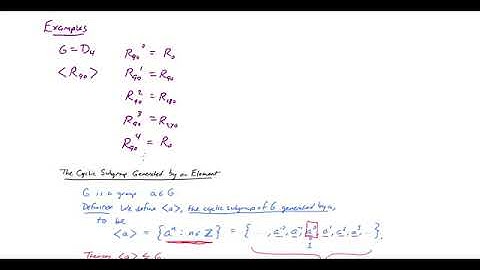 Examples
G = D₄ R₉₀⁰ = R₀
<R₉₀> R₉₀¹ = R₉₀
R₉₀² = R₁₈₀
R₉₀³ = R₂₇₀
R₉₀⁴ = R₀
⋮
The Cyclic Subgroup Generated by an Element
G is a group a ∈ G
Definition We define <a>, the cyclic subgroup of G generated by a,
to be
<a> = {aⁿ : n ∈ ℤ} = {..., a⁻², a⁻¹, a⁰, a¹, a², a³, ...}.
1
Theorem <a> ≤ G.